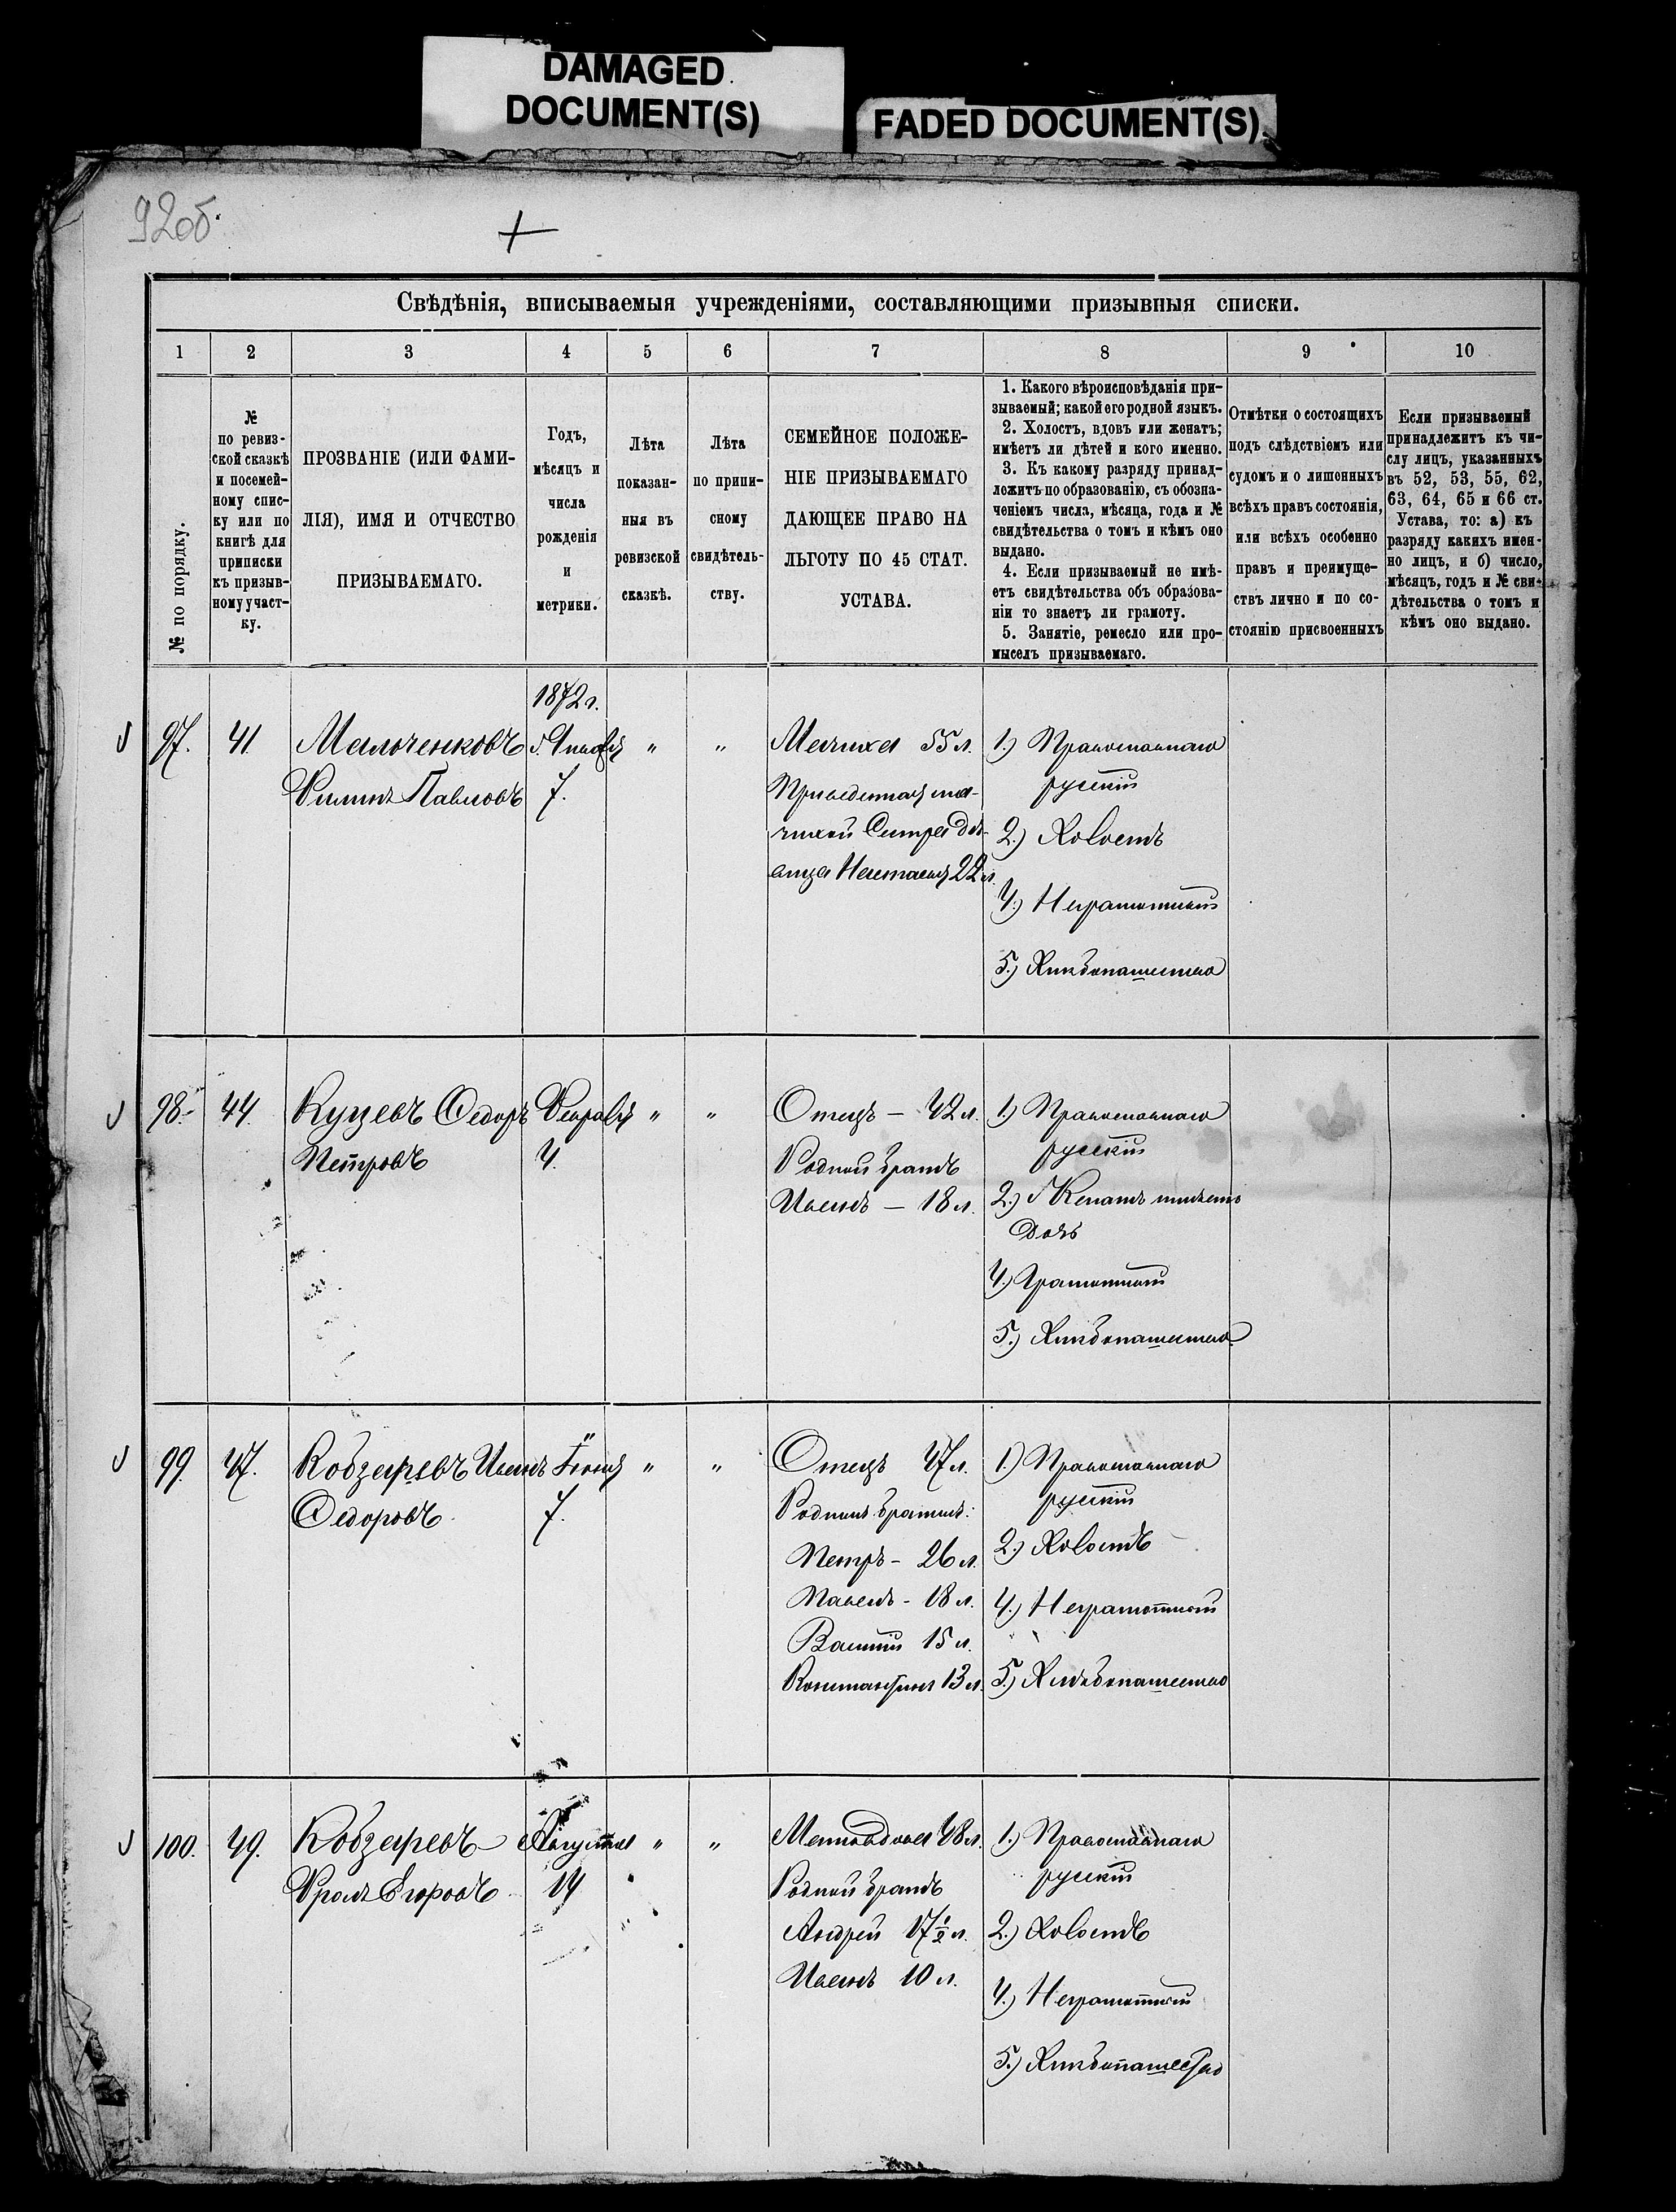 DAMAGED
DOCUMENT(S)
FADED DOCUMENT(S)
92об.
Свѣдѣнія, вписываемыя учрежденіями, составляющими призывныя списки.
1 2 3 4 5 6 7 8 9 10
№ по порядку.
№
по ревиз-
ской сказкѣ
и посемей-
ному спис-
ку или по
книгѣ для
приписки
къ призыв-
ному участ-
ку.
ПРОЗВАНІЕ (ИЛИ ФАМИ-
ЛІЯ), ИМЯ И ОТЧЕСТВО
ПРИЗЫВАЕМАГО.
Годъ,
мѣсяцъ и
числа
рожденія
и
метрики.
Лѣта
показан-
ныя въ
ревизской
сказкѣ.
Лѣта
по припи-
сному
свидѣтель-
ству.
СЕМЕЙНОЕ ПОЛОЖЕ-
НІЕ ПРИЗЫВАЕМАГО
ДАЮЩЕЕ ПРАВО НА
ЛЬГОТУ ПО 45 СТАТ.
УСТАВА.
1. Какого вѣроисповѣданія при-
зываемый; какой его родной языкъ.
2. Холостъ, вдовъ или женатъ;
имѣетъ ли дѣтей и кого именно.
3. Къ какому разряду принад-
лежитъ по образованію, съ обозна-
ченіемъ числа, мѣсяца, года и №
свидѣтельства о томъ и кѣмъ оно
выдано.
4. Если призываемый не имѣ-
етъ свидѣтельства объ образова-
ніи то знаетъ ли грамоту.
5. Занятіе, ремесло или про-
мыселъ призываемаго.
Отмѣтки о состоящихъ
подъ слѣдствіемъ или
судомъ и о лишенныхъ
всѣхъ правъ состоянія,
или всѣхъ особенно
правъ и преимуще-
ствъ лично и по со-
стоянію присвоенныхъ
Если призываемый
принадлежитъ къ чи-
слу лицъ, указанныхъ
въ 52, 53, 55, 62,
63, 64, 65 и 66 ст.
Устава, то: а) къ
разряду какихъ имен-
но лицъ, и б) число,
мѣсяцъ, годъ и № сви-
дѣтельства о томъ и
кѣмъ оно выдано.
97.
41.
Мальченковъ
Филипъ Павловъ
1872 г.
Января
7.
" "
Мачиха 55 л.
Приведенная ма-
чихой Сестра
Настасья 22 л.
1.) Православнаго
русскій
2.) Холостъ
4.) Неграмотный
5.) Хлѣбопашество
98.
44.
Куцевъ Федоръ
Петровъ
Февраля
4.
" "
Отецъ – 42 л.
Родной братъ
Иванъ – 18 л.
1.) Православнаго
русскій
2.) Женатъ имѣетъ
дочь
4.) Грамотный
5.) Хлѣбопашество
99.
47.
Кобзаревъ Иванъ
Федоровъ
Іюня
7.
" "
Отецъ 47 л.
Родныхъ братьевъ:
Петръ – 26 л.
Павелъ – 18 л.
Василій 15 л.
Константинъ 13 л.
1.) Православнаго
русскій
2.) Холостъ
4.) Неграмотный
5.) Хлѣбопашество
100.
49.
Кобзаревъ
Фролъ Егоровъ
Августа
14
" "
Мать вдова 48 л.
Родной братъ
Андрей 17½ л.
Иванъ 10 л.
1.) Православнаго
русскій
2.) Холостъ
4.) Неграмотный
5.) Хлѣбопашество